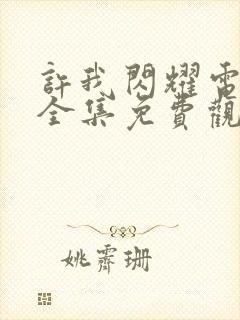 許我閃耀電
全集免費觀
姚霽珊